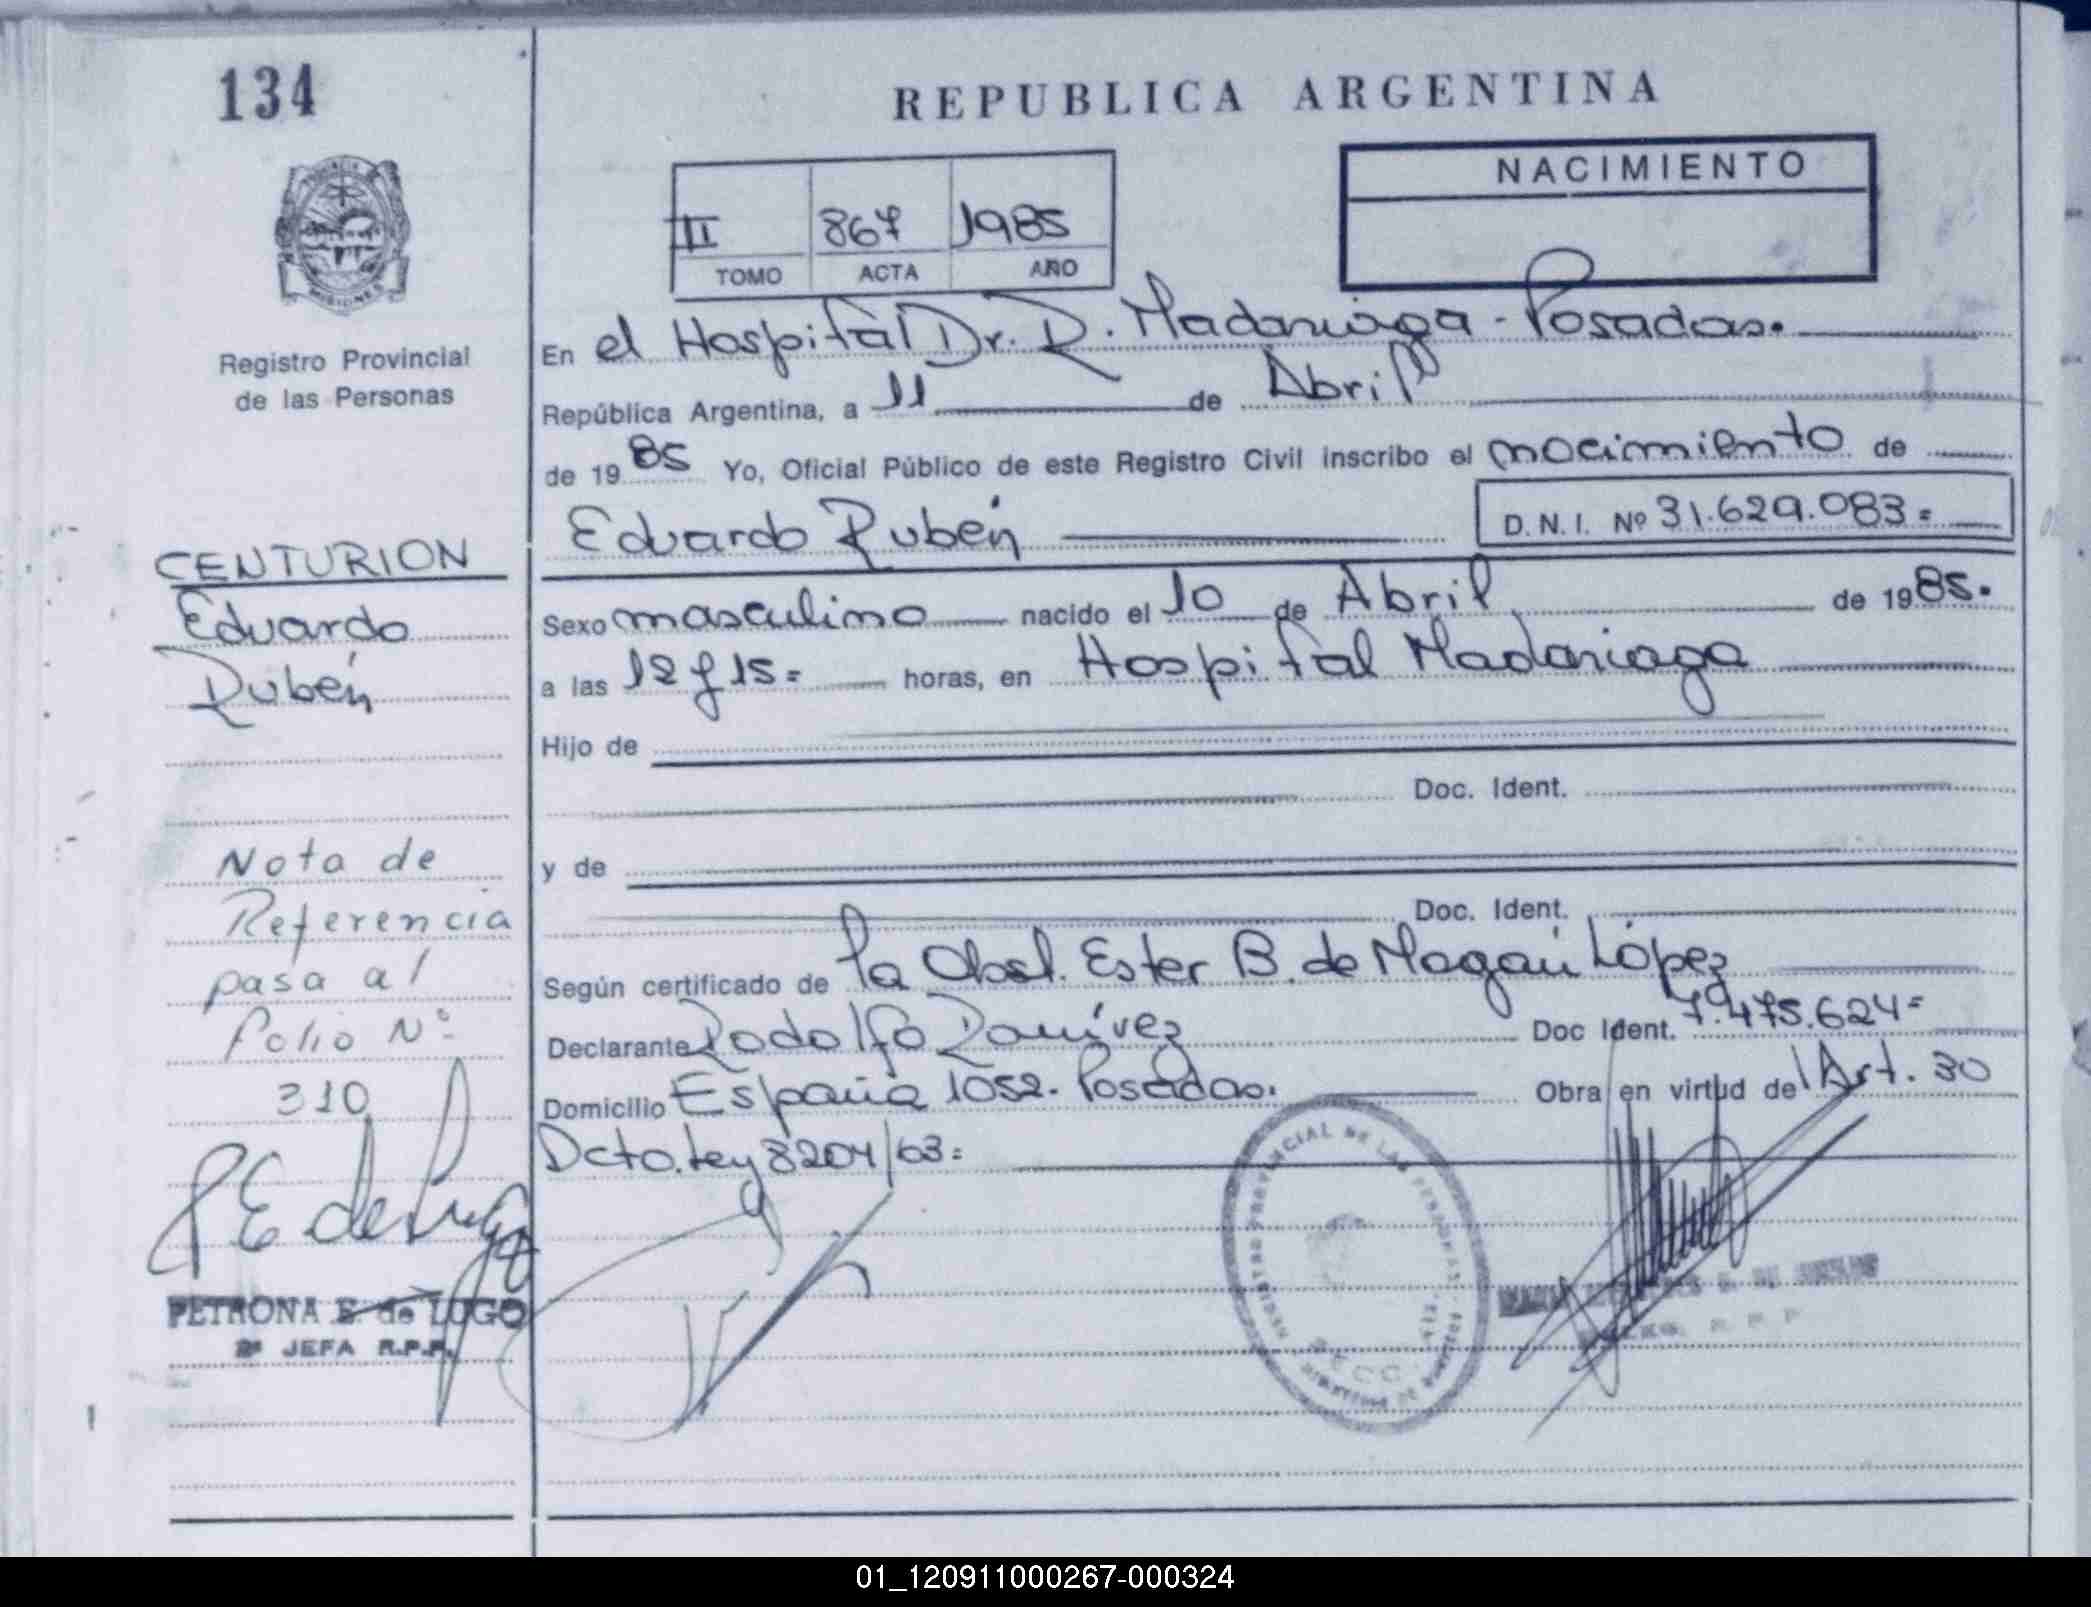 134
REPUBLICA ARGENTINA
NACIMIENTO
II 867 1985
TOMO ACTA AÑO
MISIONES
Registro Provincial
de las Personas
En el Hospital Dr. R. Madariaga - Posadas.
República Argentina, a 11 de Abril
de 1985 Yo, Oficial Público de este Registro Civil inscribo el nacimiento de
Eduardo Rubén D.N.I. Nº 31.629.083=
CENTURION
Eduardo
Rubén
Sexo masculino nacido el 10 de Abril de 1985.
a las 12 y 15= horas, en Hospital Madariaga
Hijo de
Doc. Ident.
y de
Doc. Ident.
Según certificado de la Obst. Ester B. de Magaú López
Declarante Rodolfo Ramírez Doc Ident. 7.475.624=
Domicilio España 1052. Posadas. Obra en virtud del Art. 30
Dcto. Ley 8204/63=
Nota de
Referencia
pasa al
Folio Nº
310
P E de Lugo
PETRONA E. de LUGO
2ª JEFA R.P.P.
REGISTRO PROVINCIAL DE LAS PERSONAS
R. P. P.
01_120911000267-000324